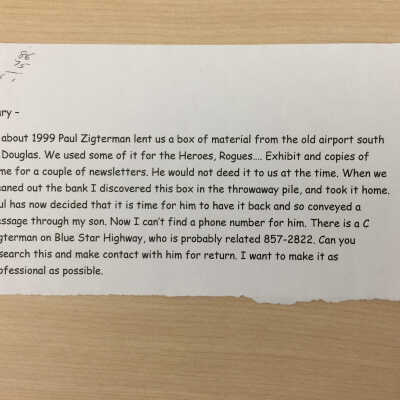 86
75
ry –
about 1999 Paul Zigterman lent us a box of material from the old airport south
Douglas. We used some of it for the Heroes, Rogues.... Exhibit and copies of
me for a couple of newsletters. He would not deed it to us at the time. When we
aned out the bank I discovered this box in the throwaway pile, and took it home.
ul has now decided that it is time for him to have it back and so conveyed a
ssage through my son. Now I can't find a phone number for him. There is a C
gterman on Blue Star Highway, who is probably related 857-2822. Can you
search this and make contact with him for return. I want to make it as
ofessional as possible.